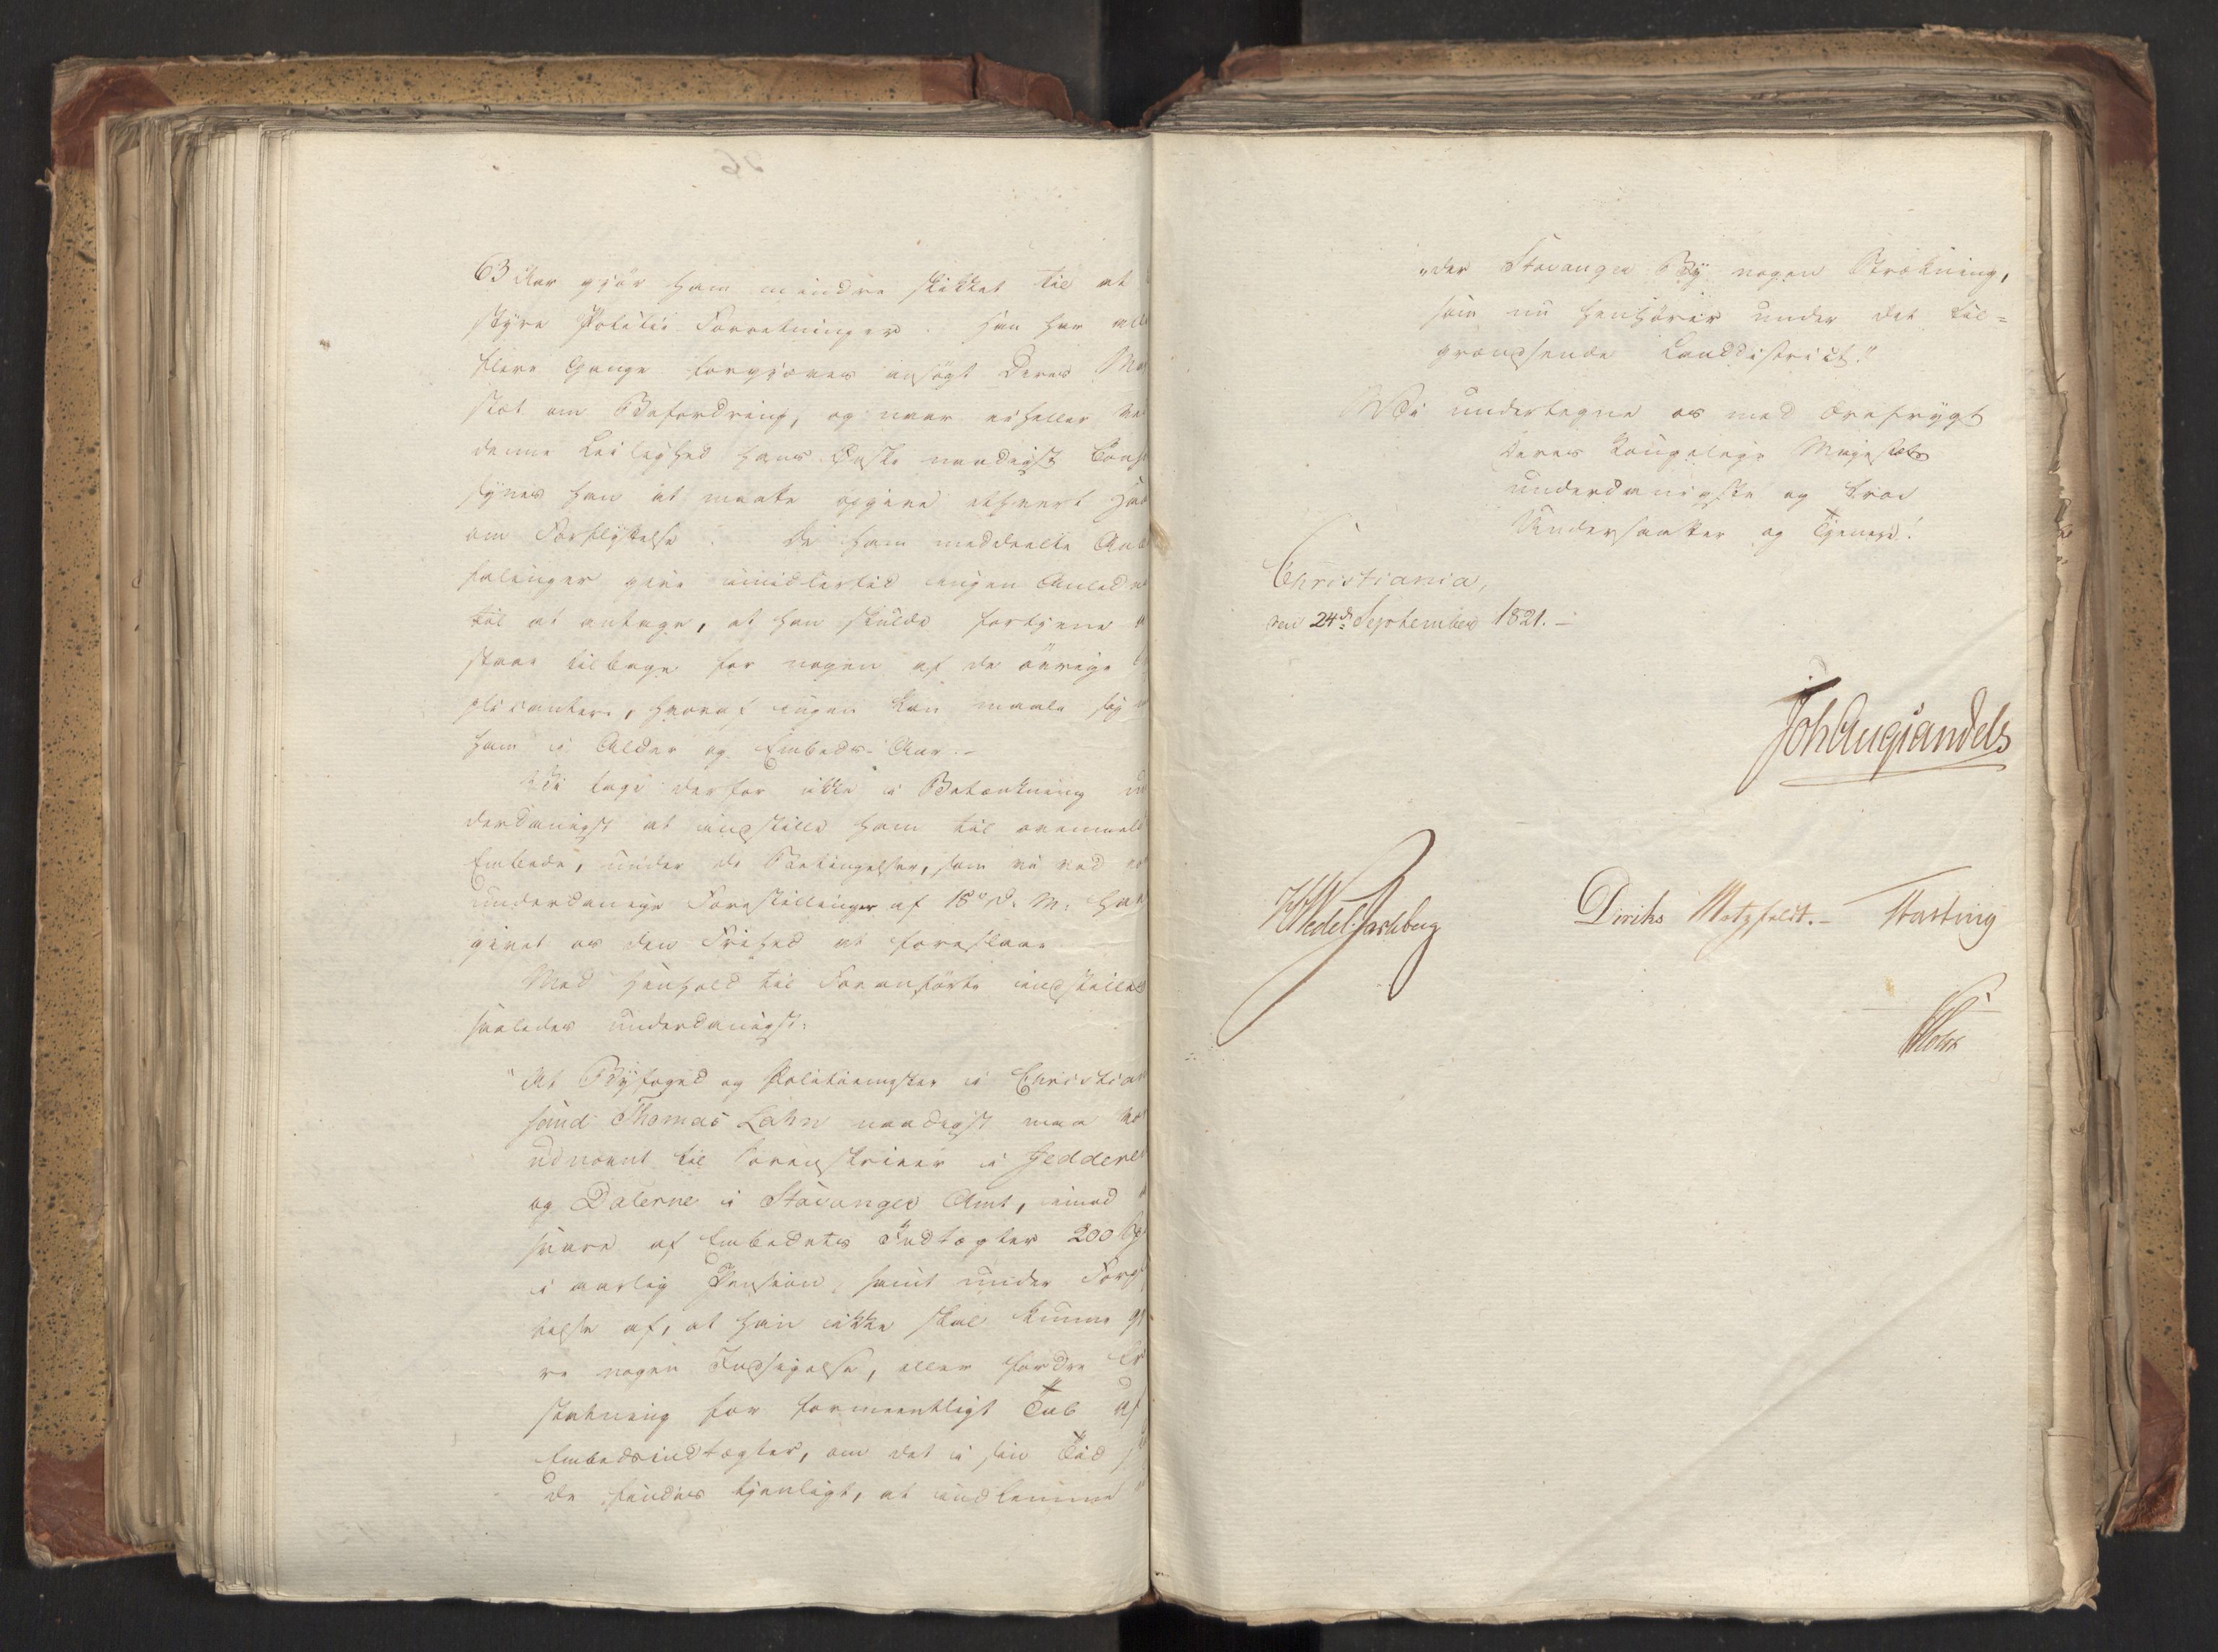 63 Aar gjør ham mindre skikket til at
styre Politie Forretninger. Han har
flere Gange forgjæves ansøgt Deres
stæt om Befordring, og naar ei heller
denne Leilighed hans Ønske naadigst
synes han at maatte opgive ethvert
om Forflyttelse. De ham meddeelte
falinger give imidlertid ingen
til at antage, at han skulde fortjene
staae tilbage for nogen af de øvrige
plicantere, hvoraf ingen kan maale sig
ham i Alder og Embeds-Aar.-
Vi tage derfor ikke i Betænkning
derdanigst at indstille ham til
Embede, under de Betingelser, som vi ved
underdanige Forestillinger af 18de d. M. har
givet os den Frihed at foreslaae
Med Henhold til Foranførte indstilles
saaledes underdanigst:
"At Byfoged og Politiemester i Christian
sund Thomas Lahn naadigst maa
udnævnt til Sorenskriver i
og Dalerne i Stavanger Amt, imod
svare af Embedets Indtægter 200
i aarlig Pension, samt under
telse af, at han ikke skal kunne gj
re nogen Indsigelse, eller fordre Er
statning for formeentligt Tab af
Embedsindtægter, om det i sin Tid
de findes tjenligt, at indlemme
"der Stavanger By nogen Strækning,
som nu henhører under det til-
grændsende Landdistrict."
Vi undertegne os med Ærefrygt
Deres Kongelige Majestæts
underdanigste og troe
Undersaatter og Tjenere!
Christiania,
den 24de September 1821. -
Joh Aug Sandels
H Wedel Jarlsberg
Diriks Motzfeldt. - Hartwig